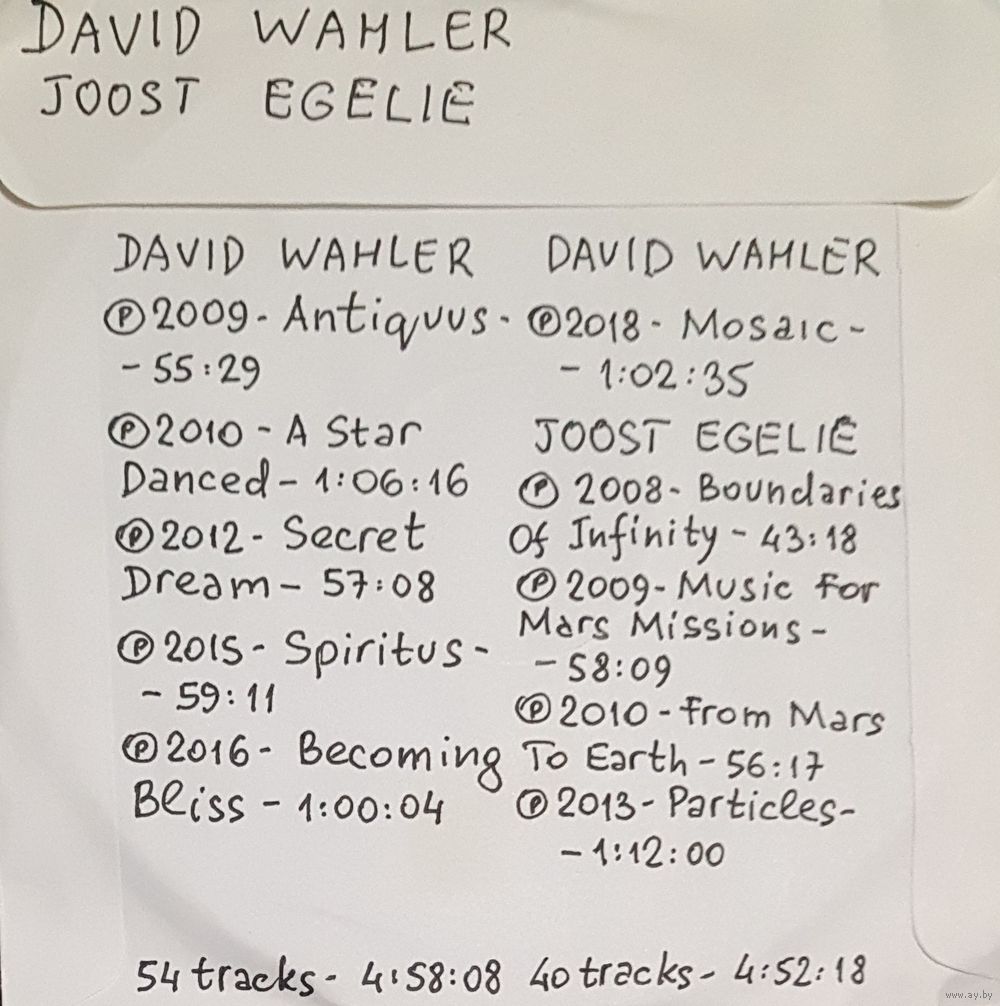 DAVID WAHLER
JOOST EGELIE
DAVID WAHLER
℗2009- Antiquus -
- 55:29
℗2010 - A Star
Danced - 1:06:16
℗2012 - Secret
Dream - 57:08
℗2015 - Spiritus -
- 59:11
℗2016 - Becoming
Bliss - 1:00:04
54 tracks - 4:58:08
DAVID WAHLER
℗2018 - Mosaic -
- 1:02:35
JOOST EGELIE
℗ 2008 - Boundaries
Of Infinity - 43:18
℗2009 - Music For
Mars Missions -
- 58:09
℗2010 - From Mars
To Earth - 56:17
℗2013 - Particles -
- 1:12:00
40 tracks - 4:52:18
www.ay.by